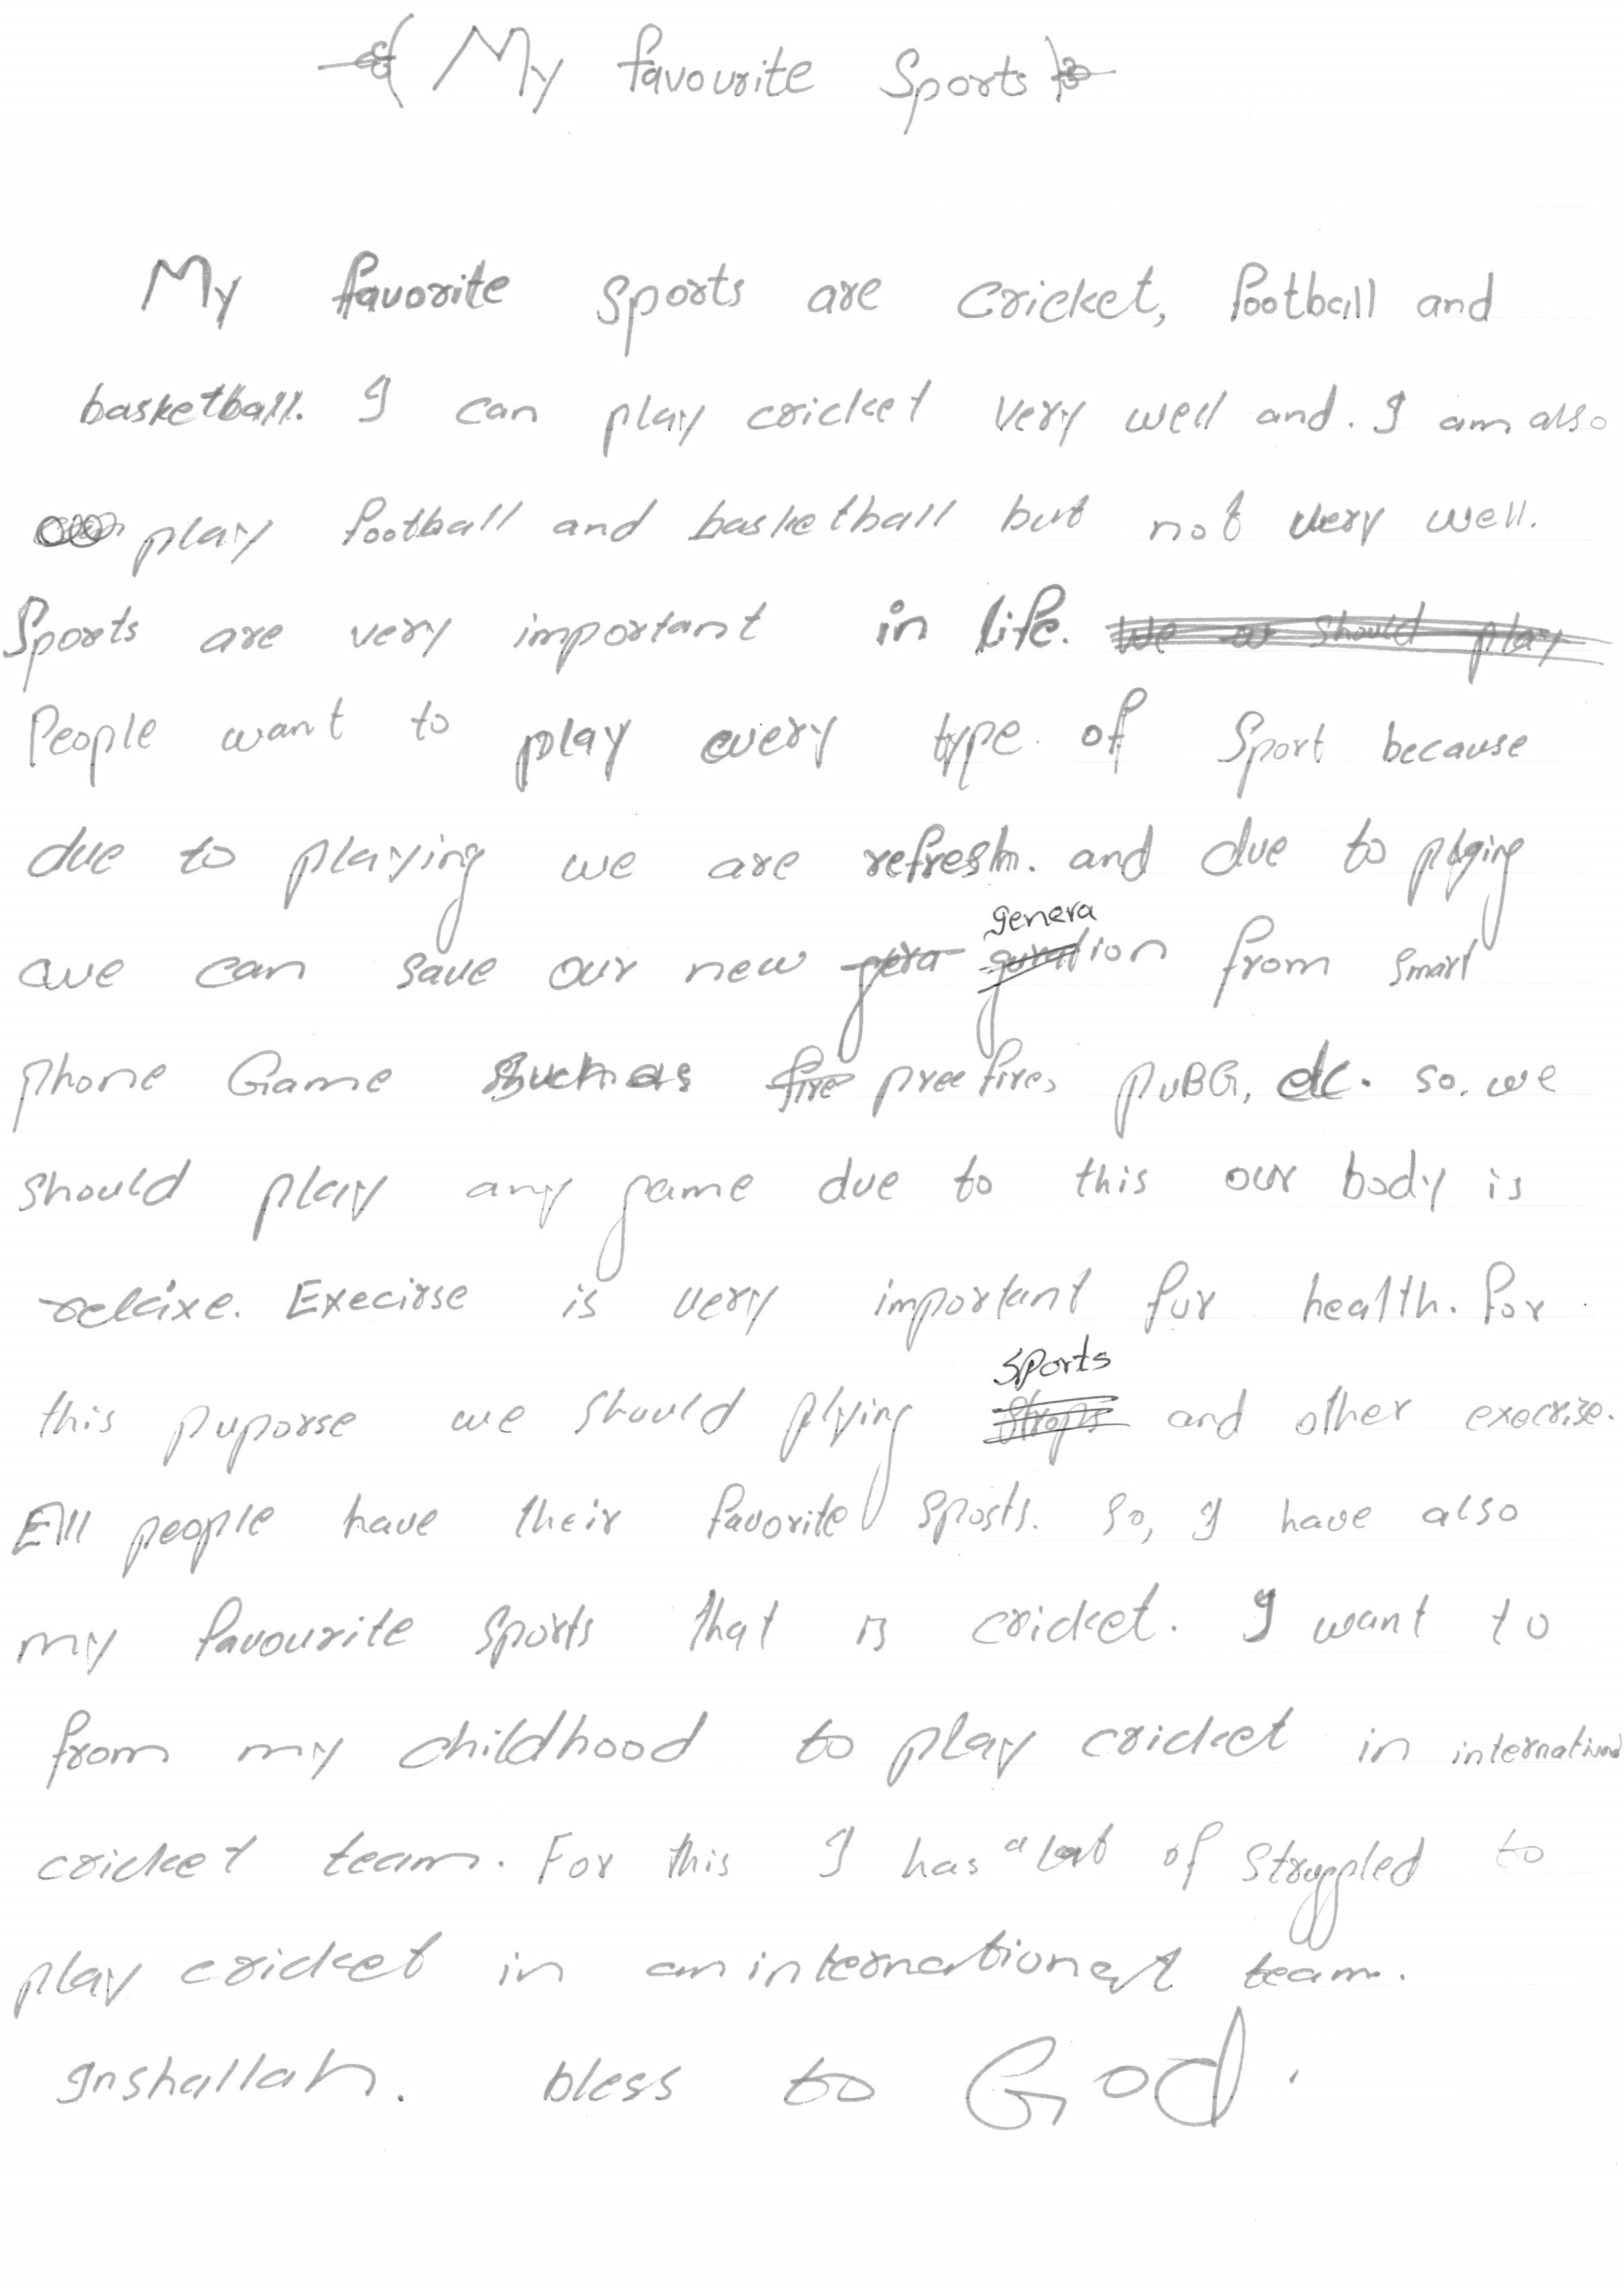 My favourite Sports
My favorite sports are cricket, football and
basketball. I can play cricket very well and. I am also
play football and basketball but not very well.
Sports are very important in life. We should play
People want to play every type of Sport because
due to playing we are refresh. and due to plying
we can save our new generation from smart
phone Game such as fire pree fire, PUBG, etc. so. we
should play any game due to this our body is
relaixe. Execirse is very important for health. For
this puporse we should plying sports and other execrise.
All people have their favorite sports. So, I have also
my favourite sports that is cricket. I want to
from my childhood to play cricket in international
cricket team. For this I has a lot of struggled to
play cricket in an international team.
Inshallah. bless to God.